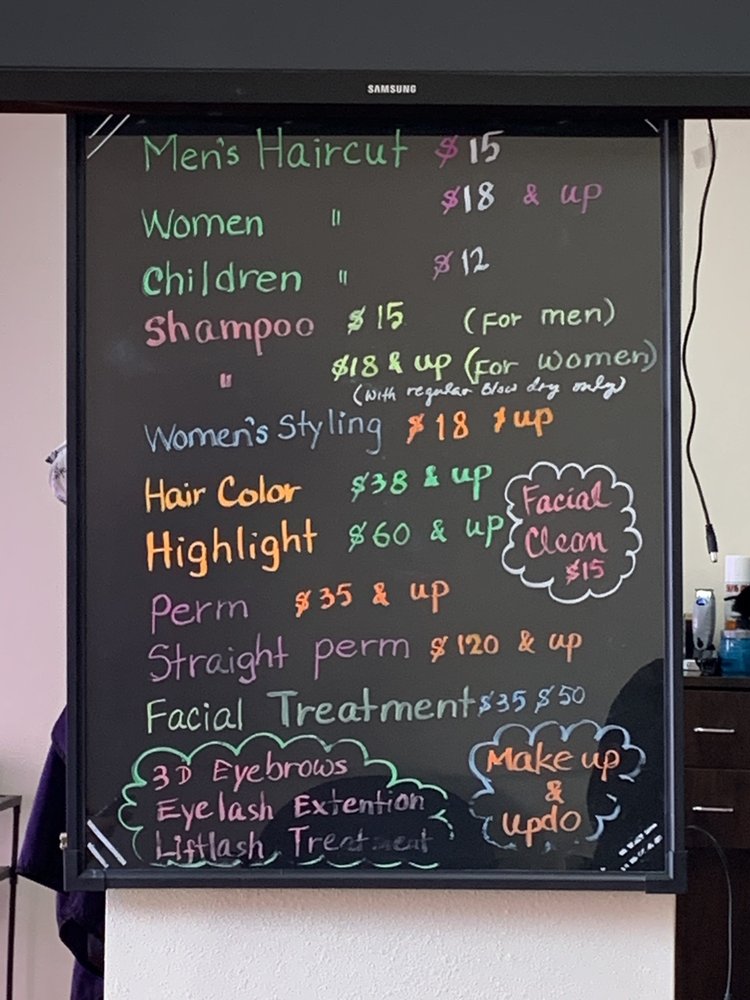 SAMSUNG
Men's Haircut $15
Women " $18 & up
Children " $12
Shampoo $15 (For men)
" $18 & up (For women)
(With regular Blow dry only)
Women's Styling $18 & up
Hair Color $38 & up
Highlight $60 & up
Facial
Clean
$15
Perm $35 & up
Straight perm $120 & up
Facial Treatment $35 $50
3D Eyebrows
Eyelash Extention
Liftlash Treatment
Make up
&
updo